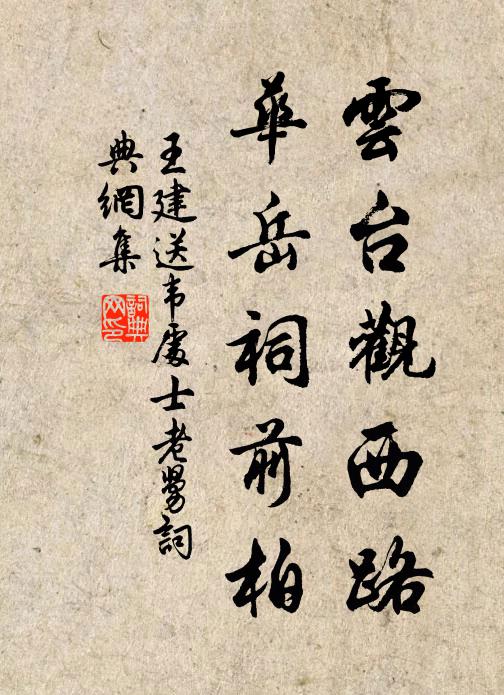 雲台觀西路
華岳祠前柏
王建送韦處士老舅詞
典網集
詞典
网印